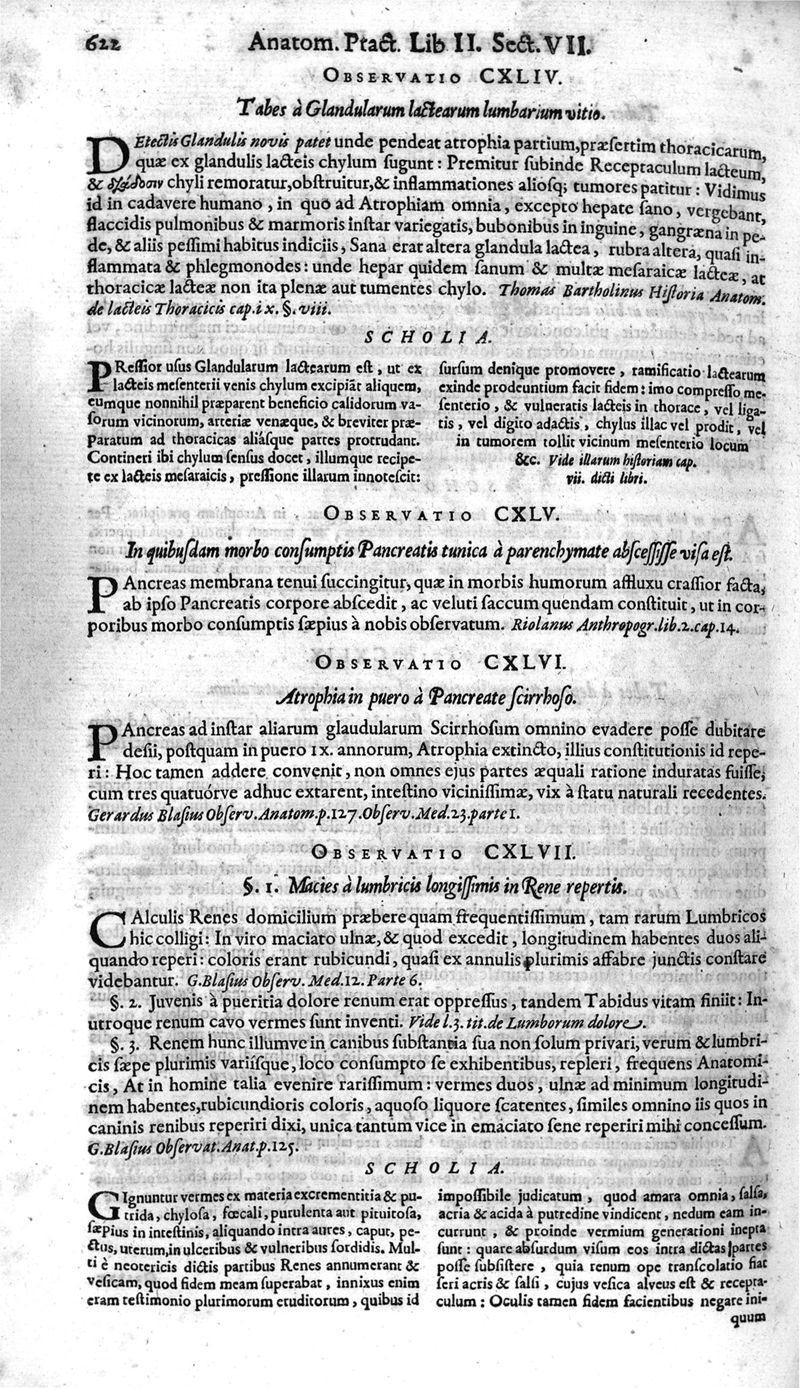 622 Anatom. Pract. Lib II. Sect. VII.
OBSERVATIO CXLIV.
Tabes à Glandularum lactearum lumbarium vitio.
DEtectis Glandulis novis patet unde pendeat atrophia partium, præſertim thoracicarum,
quæ ex glandulis lacteis chylum ſugunt: Premitur ſubinde Receptaculum lacteum,
& chyli remoratur, obſtruitur, & inflammationes alioſq; tumores patitur: Vidimus
id in cadavere humano, in quo ad Atrophiam omnia, excepto hepate ſano, vergebant,
flaccidis pulmonibus & marmoris inſtar variegatis, bubonibus in inguine, gangræna in pe-
de, & aliis peſſimi habitus indiciis, Sana erat altera glandula lactea, rubra altera, quaſi in-
flammata & phlegmonodes: unde hepar quidem ſanum & multæ meſaraicæ lacteæ, at
thoracicæ lacteæ non ita plenæ aut tumentes chylo. Thomas Bartholinus Hiſtoria Anatom.
de lacteis Thoracicis cap. ix. §. viii.
SCHOLIA.
PReſſior uſus Glandularum lactearum eſt, ut ex
lacteis meſenterii venis chylum excipiãt aliquem,
eumque nonnihil præparent beneficio calidorum va-
ſorum vicinorum, arteriæ venæque, & breviter præ-
paratum ad thoracicas aliáſque partes protrudant.
Contineri ibi chylum ſenſus docet, illumque recipe-
te ex lacteis meſaraicis, preſſione illarum innoteſcit:
ſurſum denique promovere, ramificatio lactearum
exinde prodeuntium facit fidem: imo compreſſo me-
ſenterio, & vulneratis lacteis in thorace, vel liga-
tis, vel digito adactis, chylus illac vel prodit, vel
in tumorem tollit vicinum meſenterio locum
&c. Vide illarum hiſtoriam cap.
vii. dicti libri.
OBSERVATIO CXLV.
In quibuſdam morbo conſumptis Pancreatis tunica à parenchymate abſceſſiſſe viſa eſt.
PAncreas membrana tenui ſuccingitur, quæ in morbis humorum affluxu craſſior facta,
ab ipſo Pancreatis corpore abſcedit, ac veluti ſaccum quendam conſtituit, ut in cor-
poribus morbo conſumptis ſæpius à nobis obſervatum. Riolanus Anthropogr. lib. 2. cap. 14.
OBSERVATIO CXLVI.
Atrophia in puero à Pancreate ſcirrhoſo.
PAncreas ad inſtar aliarum glaudularum Scirrhoſum omnino evadere poſſe dubitare
deſii, poſtquam in puero IX. annorum, Atrophia extincto, illius conſtitutionis id repe-
ri: Hoc tamen addere convenit, non omnes ejus partes æquali ratione induratas fuiſſe,
cum tres quatuórve adhuc extarent, inteſtino viciniſſimæ, vix à ſtatu naturali recedentes.
Gerardus Blaſius Obſerv. Anatom. p. 127. Obſerv. Med. 23. parte 1.
OBSERVATIO CXLVII.
§. 1. Macies à lumbricis longiſſimis in Rene repertis.
CAlculis Renes domicilium præbere quam frequentiſſimum, tam rarum Lumbricos
hic colligi: In viro maciato ulnæ, & quod excedit, longitudinem habentes duos ali-
quando reperi: coloris erant rubicundi, quaſi ex annulis plurimis affabre junctis conſtare
videbantur. G. Blaſius Obſerv. Med. 12. Parte 6.
§. 2. Juvenis à pueritia dolore renum erat oppreſſus, tandem Tabidus vitam finiit: In-
utroque renum cavo vermes ſunt inventi. Vide l. 3. tit. de Lumborum dolore.
§. 3. Renem hunc illumve in canibus ſubſtantia ſua non ſolum privari, verum & lumbri-
cis ſæpe plurimis variiſque, loco conſumpto ſe exhibentibus, repleri, frequens Anatomi-
cis, At in homine talia evenire rariſſimum: vermes duos, ulnæ ad minimum longitudi-
nem habentes, rubicundioris coloris, aquoſo liquore ſcatentes, ſimiles omnino iis quos in
caninis renibus reperiri dixi, unica tantum vice in emaciato ſene reperiri mihi conceſſum.
G. Blaſius Obſervat. Anat. p. 125.
SCHOLIA.
GIgnuntur vermes ex materia excrementitia & pu-
trida, chyloſa, fœcali, purulenta aut pituitoſa,
ſæpius in inteſtinis, aliquando intra aures, caput, pe-
ctus, uterum, in ulceribus & vulneribus ſordidis. Mul-
ti è neotericis dictis partibus Renes annumerant &
veſicam, quod fidem meam ſuperabat, innixus enim
eram teſtimonio plurimorum eruditorum, quibus id
impoſſibile judicatum, quod amara omnia, ſalſa,
acria & acida à putredine vindicent, nedum eam in-
currunt, & proinde vermium generationi inepta
ſunt: quare abſurdum viſum eos intra dictas partes
poſſe ſubſiſtere, quia renum ope tranſcolatio fiat
ſeri acris & ſalſi, cujus veſica alveus eſt & recepta-
culum: Oculis tamen fidem facientibus negare ini-
quum